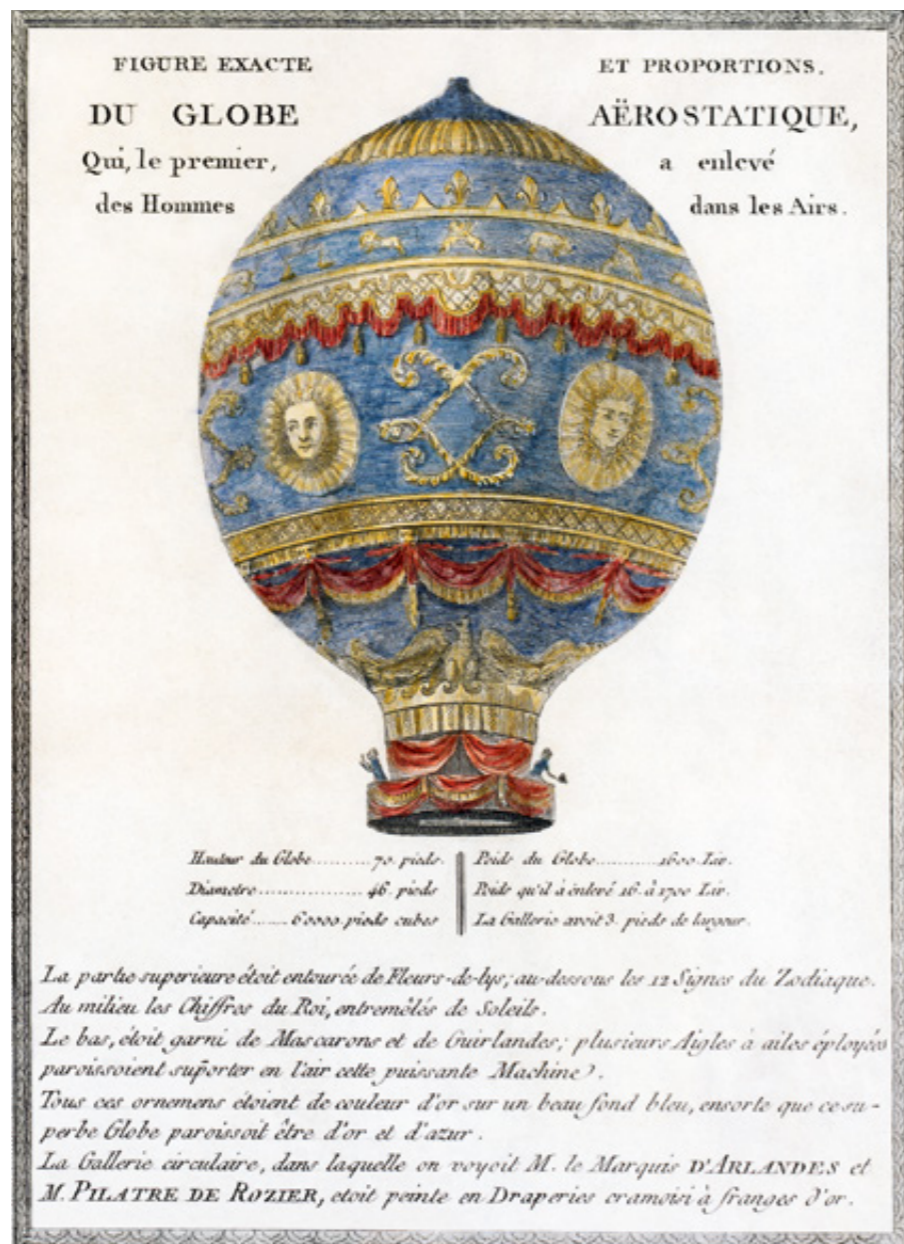 FIGURE EXACTE ET PROPORTIONS.
DU GLOBE AËROSTATIQUE,
Qui, le premier, a enlevé
des Hommes dans les Airs.
Hauteur du Globe..........70. pieds.
Diametre.................. 46. pieds
Capacité....... 60000. pieds cubes
Poids du Globe..........1600. Liv.
Poids qu'il à énlevé 16. à 1700 Liv.
La Gallerie avoit 3. pieds de largeur.
La partie superieure étoit entourée de Fleurs-de-lys; au-dessous les 12 Signes du Zodiaque.
Au milieu les Chiffres du Roi, entremêlés de Soleils.
Le bas, étoit garni de Mascarons et de Guirlandes; plusieurs Aigles à ailes éployées
paroissoient supórter en l'air cette puissante Machine.
Tous ces ornemens étoient de couleur d'or sur un beau fond bleu, ensorte que ce su-
perbe Globe paroissoit être d'or et d'azur.
La Gallerie circulaire, dans laquelle on voyoit M. le Marquis D'ARLANDES et
M. PILATRE DE ROZIER, etoit peinte en Draperies cramoisi à franges d'or.